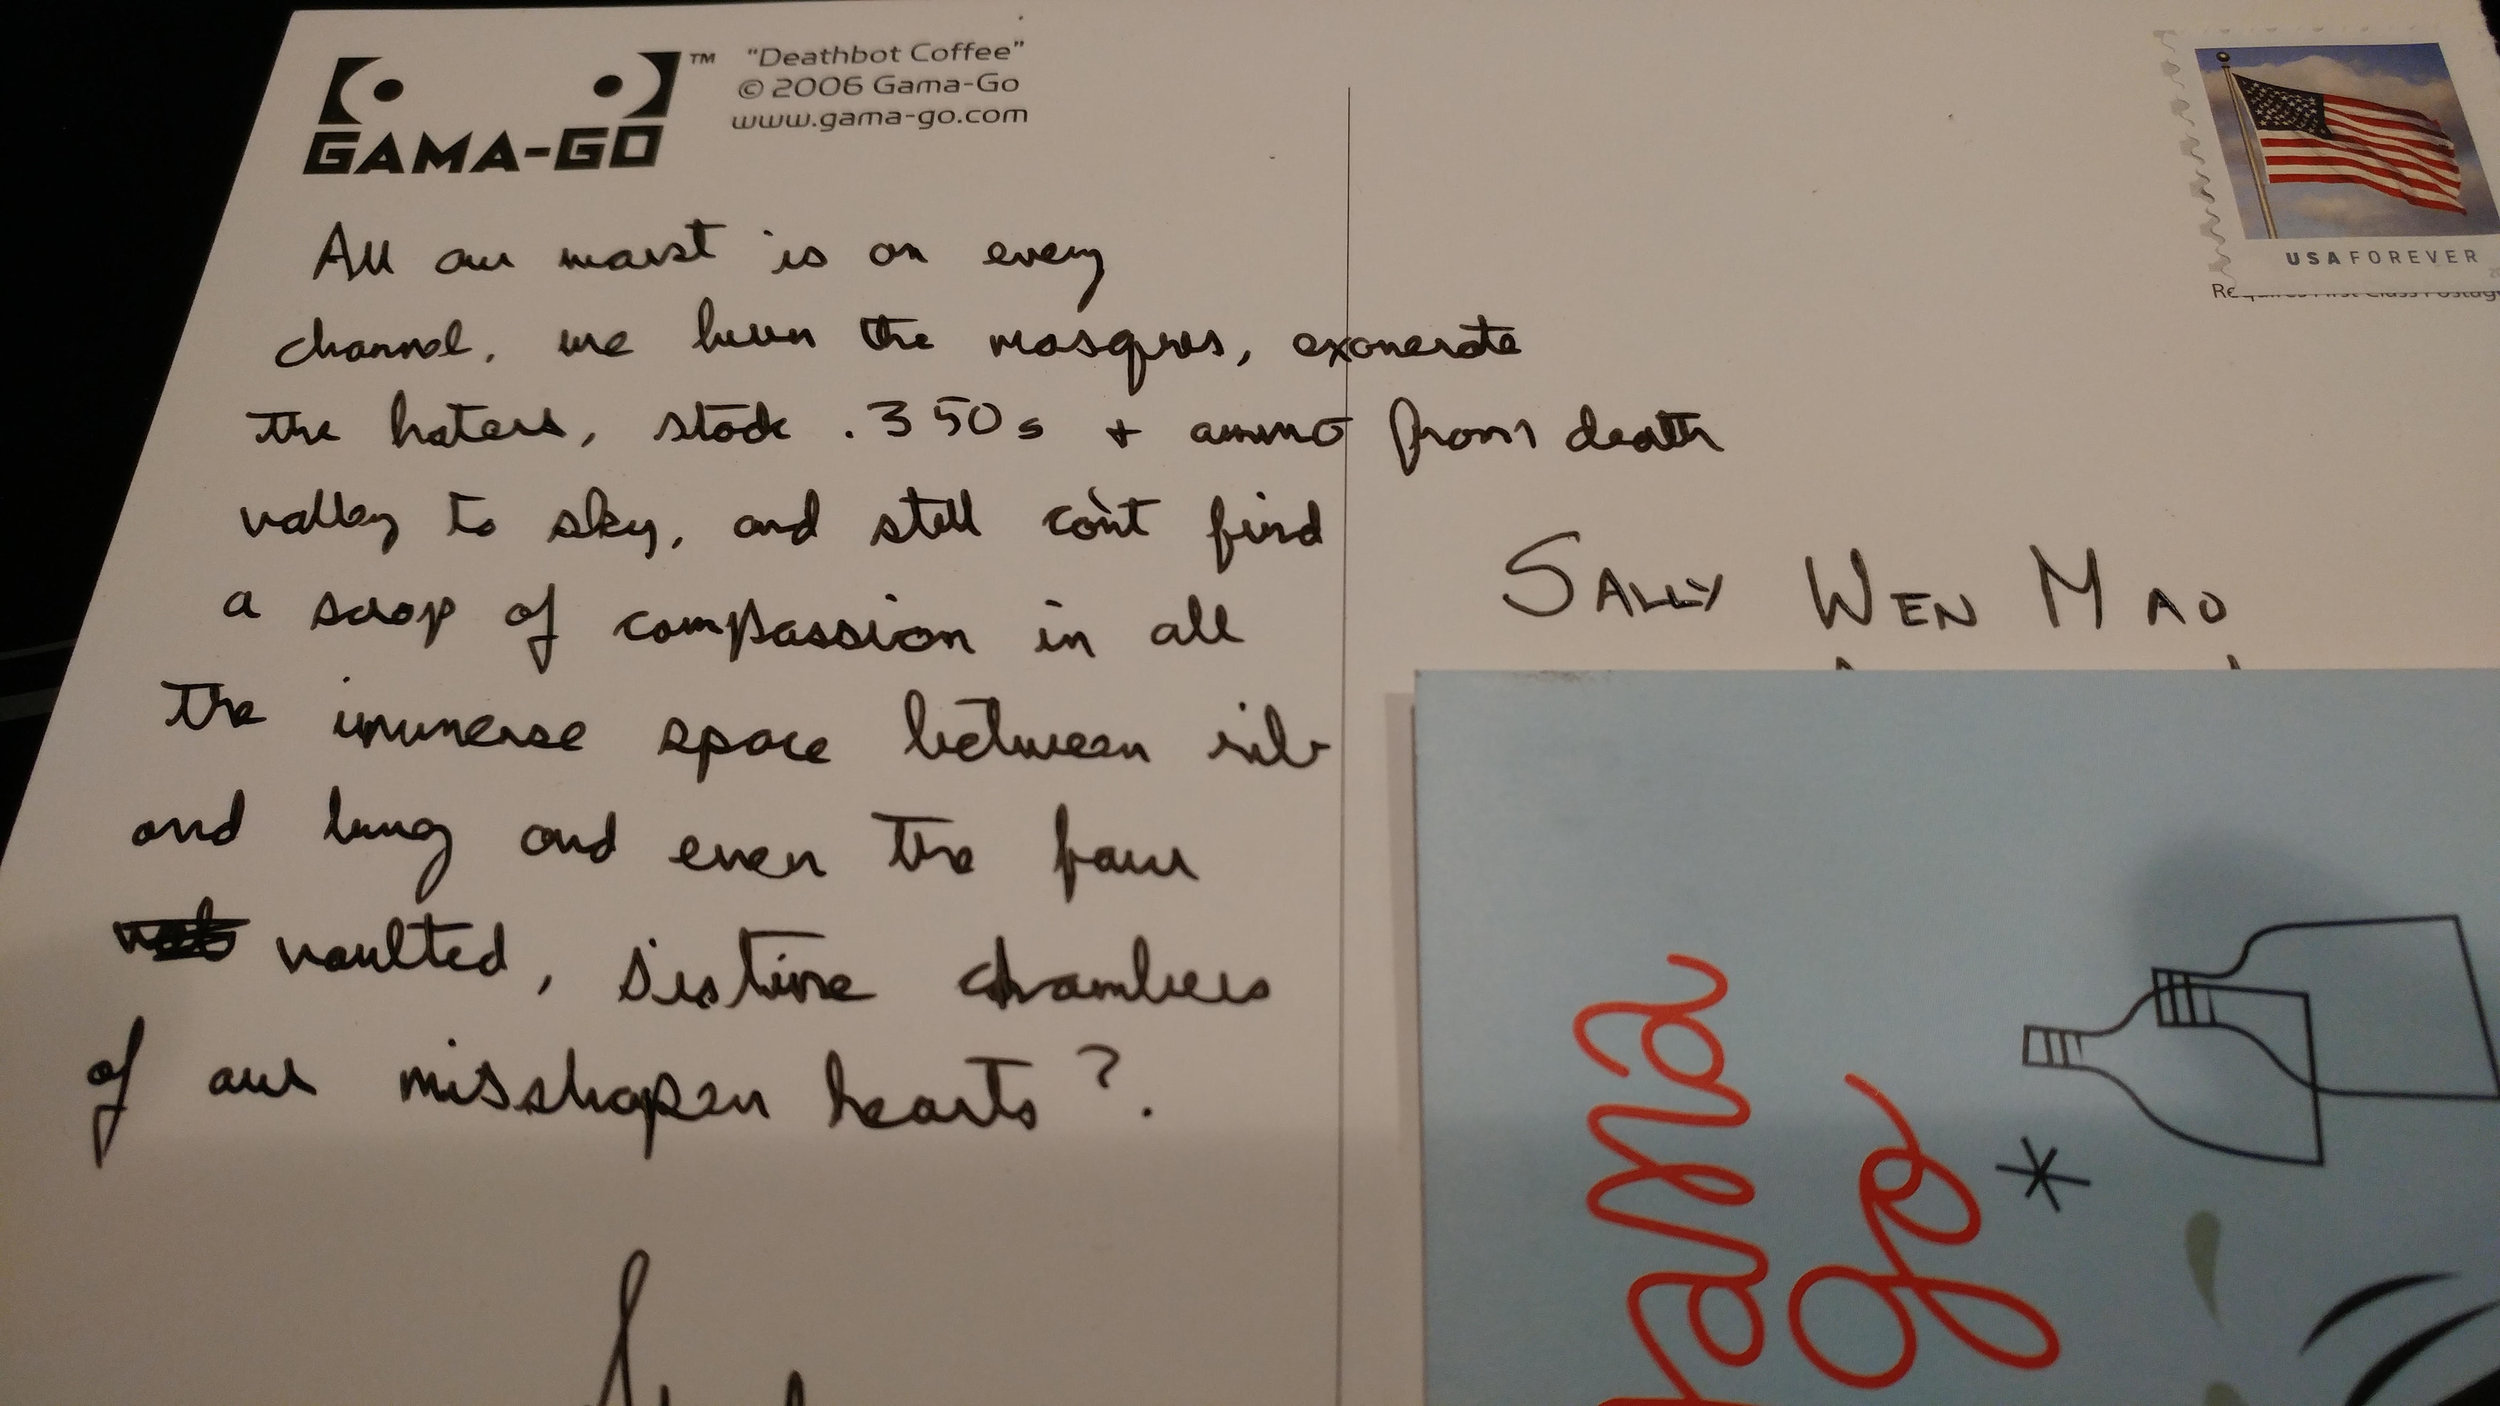 GAMA-GO™
"Deathbot Coffee"
© 2006 Gama-Go
www.gama-go.com
USA FOREVER
All our worst is on every
channel. we burn the mosques, exonerate
the haters, stock .350s + ammo from death
valley to sky, and still can't find
a scrap of compassion in all
the immense space between rib
and lung and even the four
vaulted, Sistine chambers
of our misshapen hearts?.
SALLY WEN MAO
go